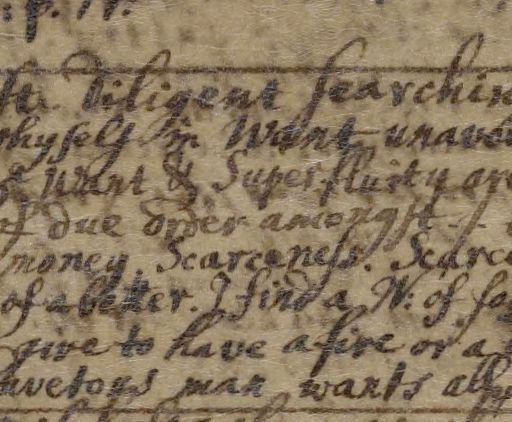 Diligent searchin
thyself in Want unavo
& Want & Superfluity are
of due order amongst
money. Scarceness. Scarce
of a better. I find a N: of
gire to have a fire or a
uvetous man wants all